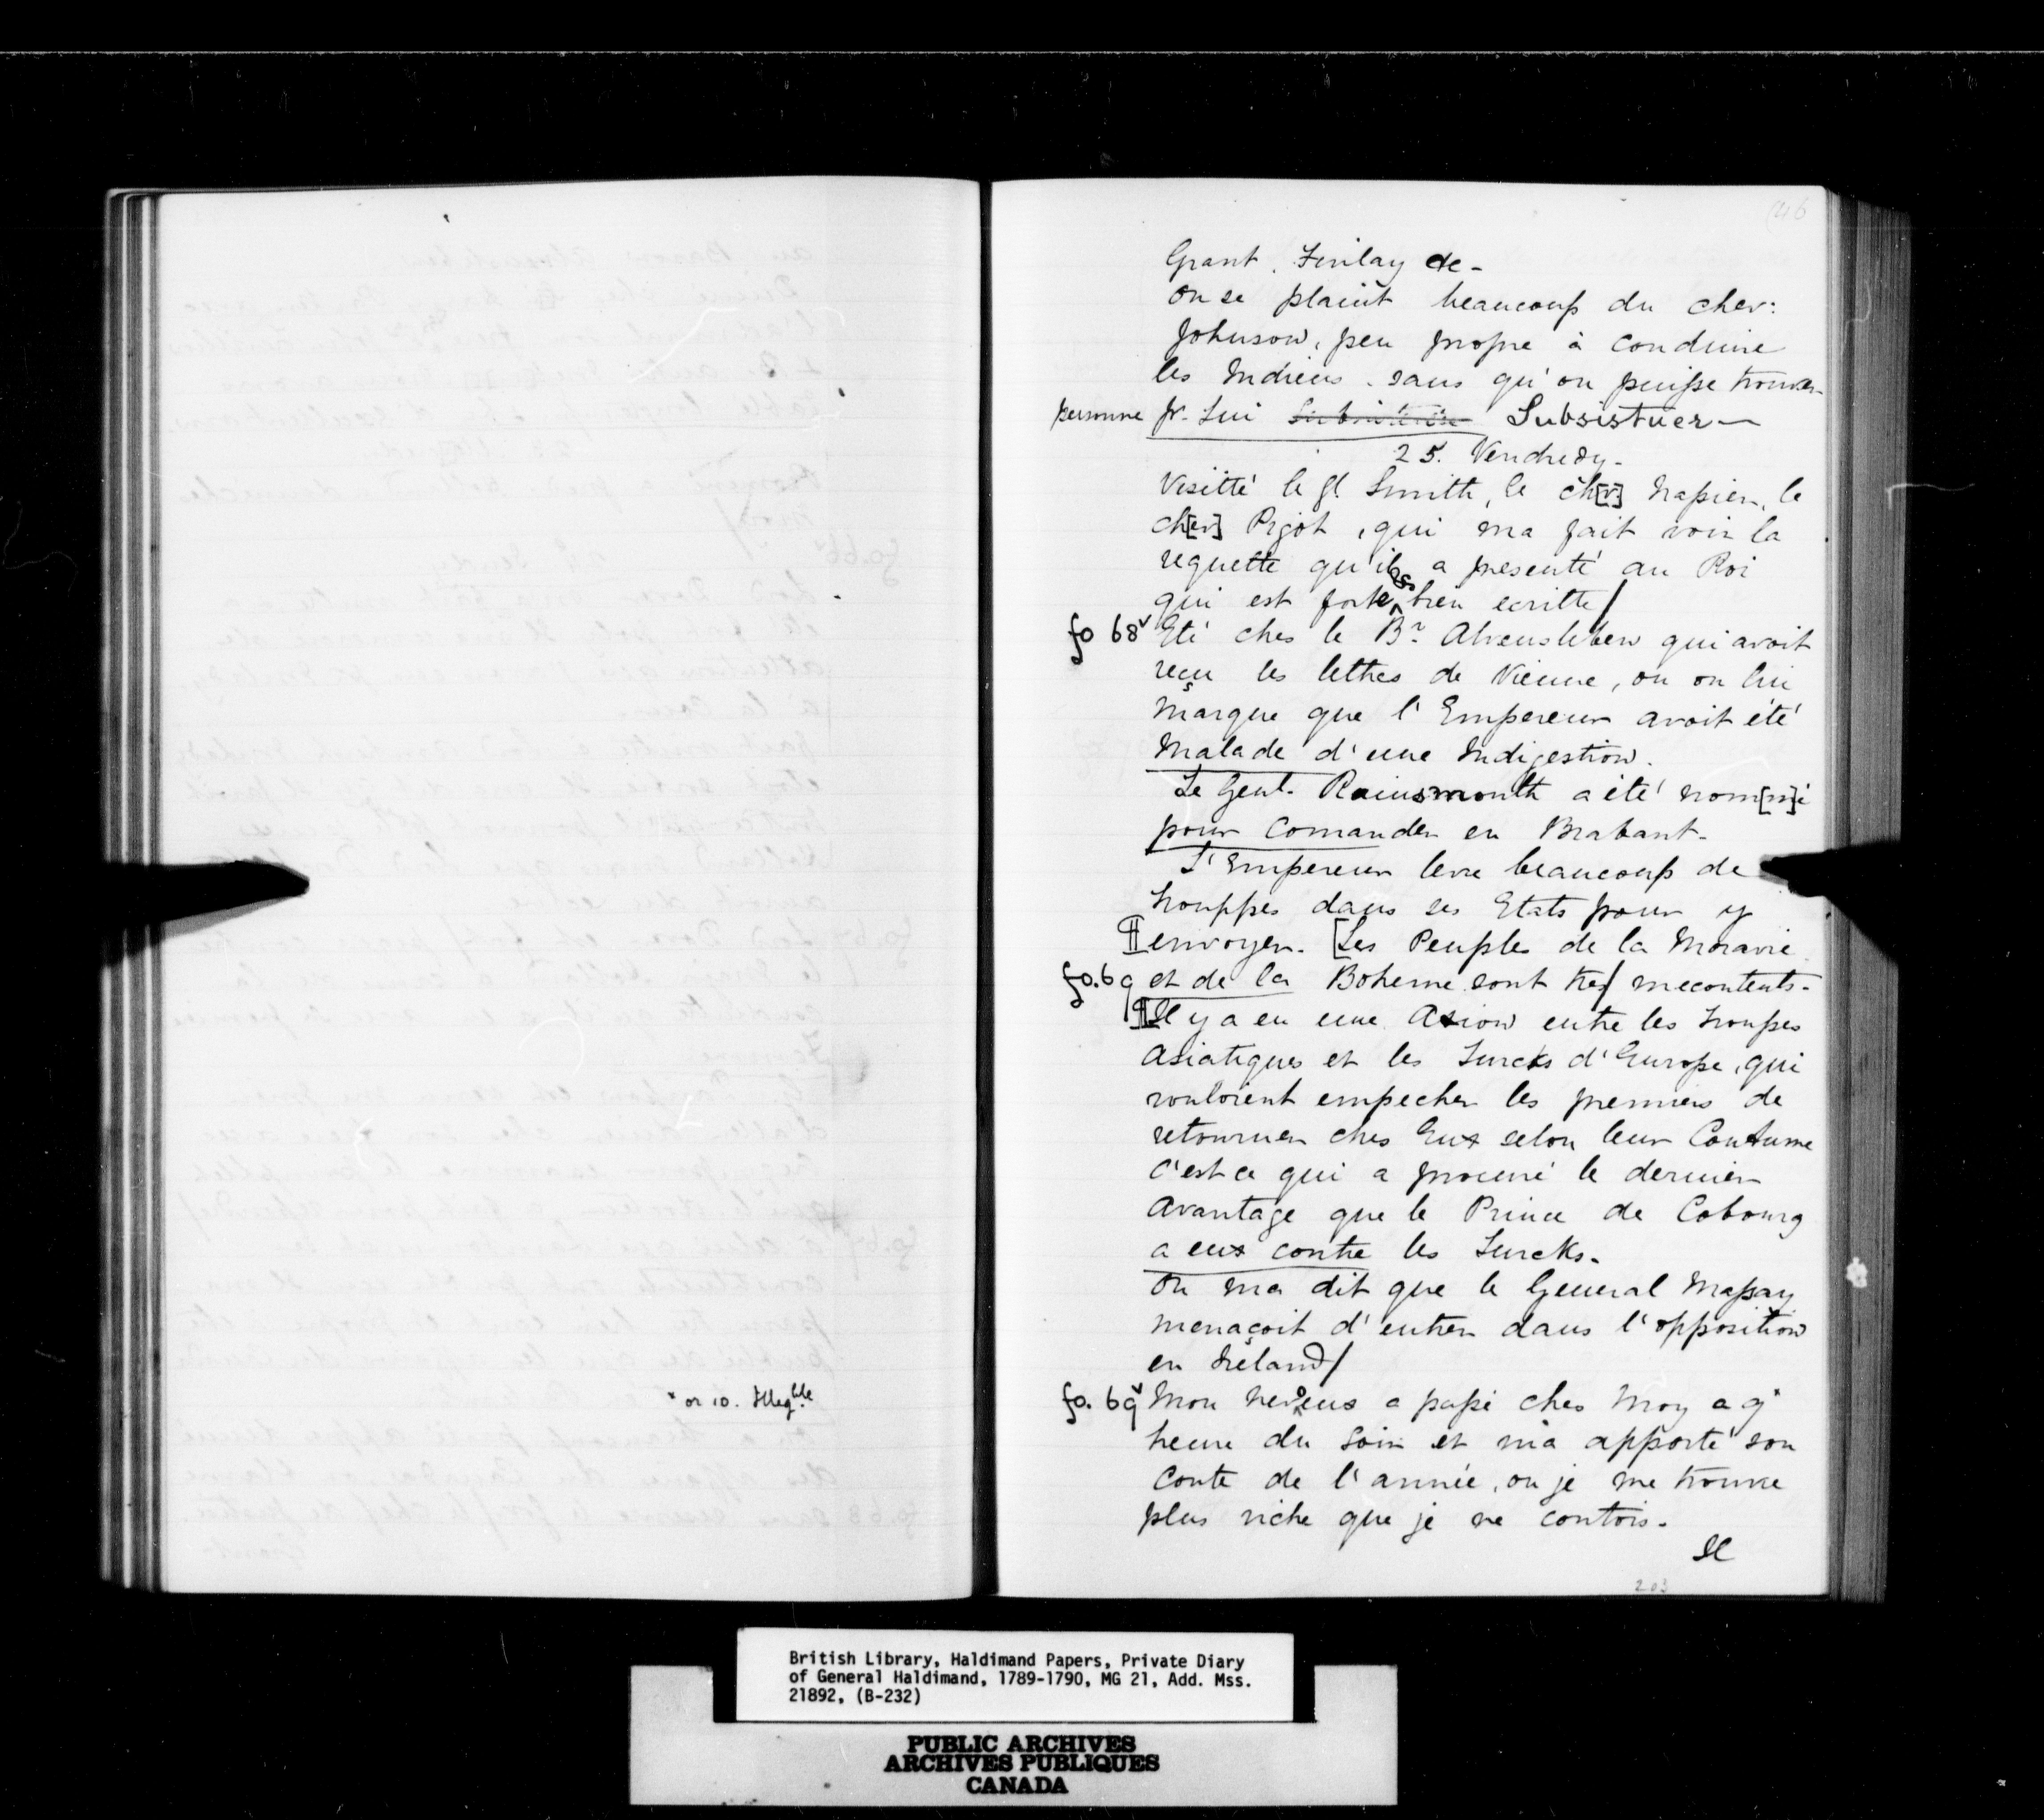 Grant, Finlay &c-
on se plaint beaucoup du cher:
Johnson, peu propre à conduire
les Indiens. sans qu'on puisse trouver
personne pr. Lui Subsistuer—
25. Vendredy-
Visitté le gl Smith, le ch[r] Napier, le
ch[er] Pigot, qui ma fait voir la
requette qu'il a presenté au Roi
qui est forte bien ecritte/
fo 68v Eté ches le Br. Alvensleben qui avoit
reçu les lettres de Vienne, ou on lui
marque que l'Empereur avoit été
malade d'une Indigestion.
Le Genl. a été nom[m]é
pour Comander en Brabant-
L'Empereur leve beaucoup de
trouppes dans ses Etats pour y
envoyer. [Les Peuples de la Moravie
fo. 69 et de la Boheme sont tres/ mecontents-
Il y a eu une Axion entre les troupes
Asiatiques et les Turcks d'Europe, qui
vouloient empecher les premiers de
retourner ches Eux selon leur Coutume
c'est ce qui a procuré le dernier
Avantage que le Prince de Cobourg
a eux contre les Turcks-
On ma dit que le General Massay
menaçoit d'entrer dans l'opposition
en Ireland/
fo. 69v Mon neveux a passé ches Moy a 9
heure du Soir et m'a apporté son
Conte de l'année, ou je me trouve
plus riche que je ne contois-
Il
203
* or 10. Illegble
British Library, Haldimand Papers, Private Diary
of General Haldimand, 1789-1790, MG 21, Add. Mss.
21892, (B-232)
PUBLIC ARCHIVES
ARCHIVES PUBLIQUES
CANADA